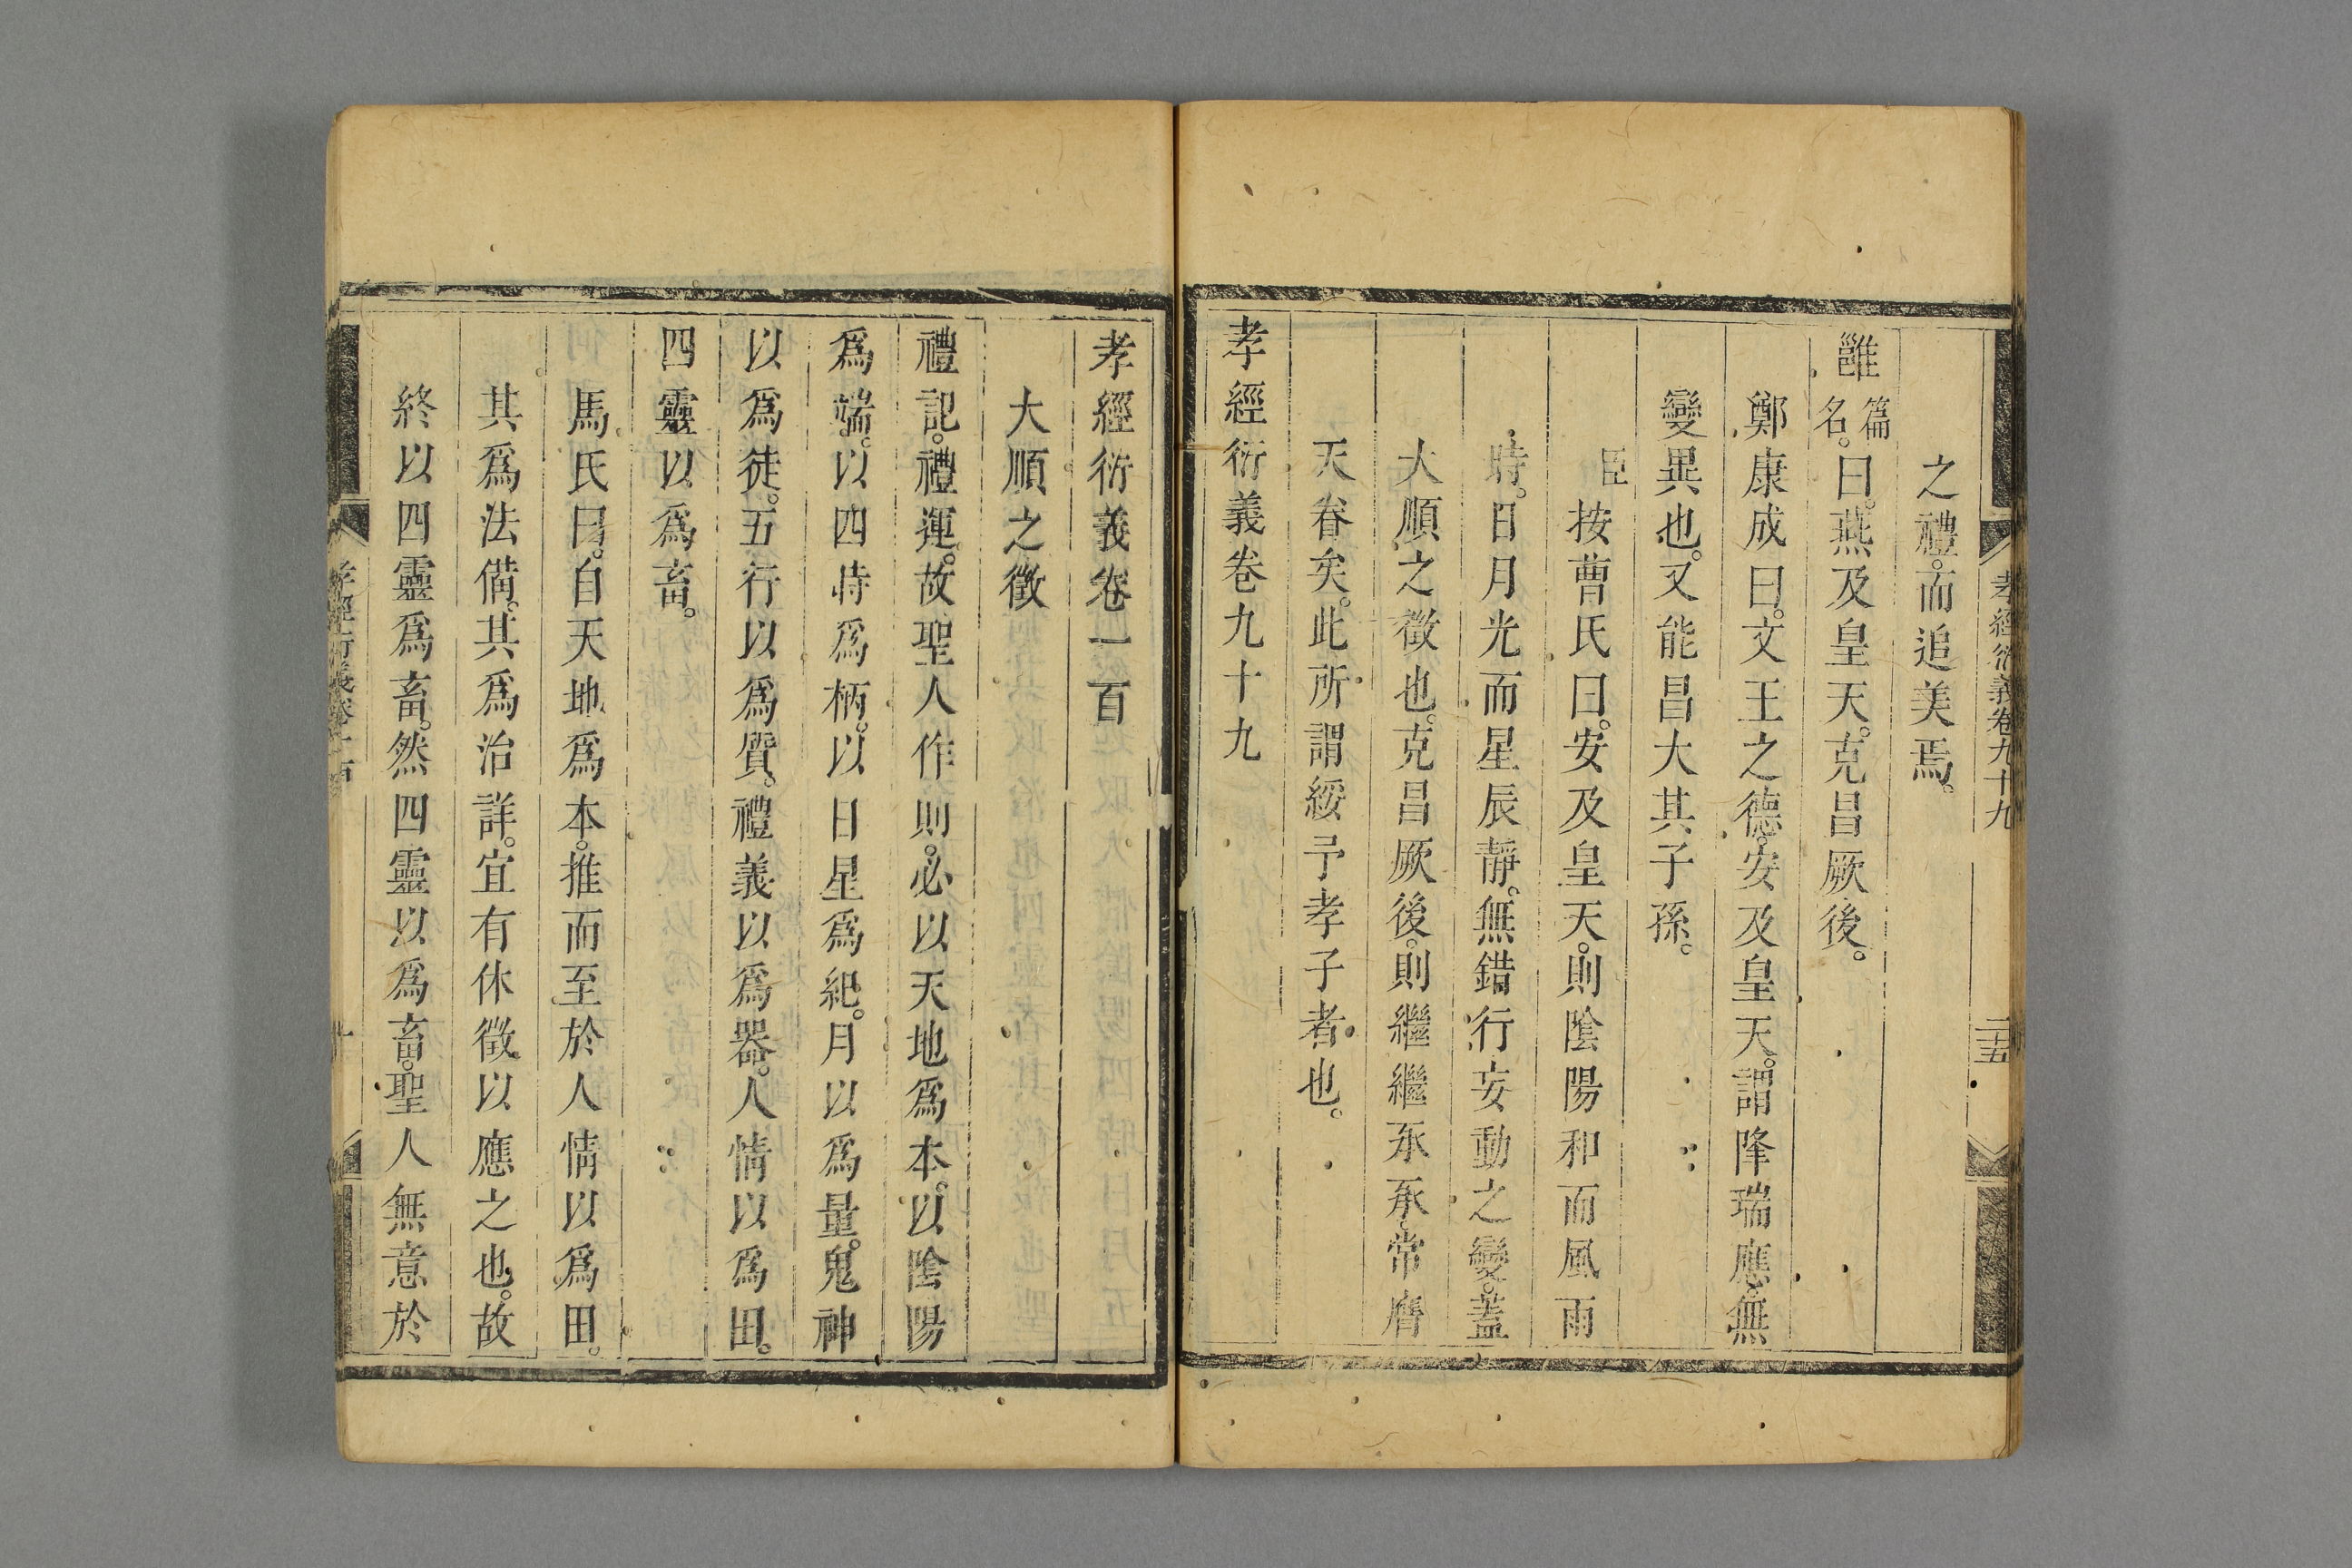 孝經衍義卷九十九
二十五
之禮。而追美焉。
雝篇名。曰。燕及皇天。克昌厥後。
鄭康成曰。文王之德。安及皇天。謂降瑞應。無
變異也。又能昌大其子孫。
臣按曹氏曰。安及皇天。則陰陽和而風雨
時。日月光而星辰靜。無錯行妄動之變。蓋
大順之徵也。克昌厥後。則繼繼承承常膺
天眷矣。此所謂綏予孝子者也。
孝經衍義卷九十九
孝經衍義卷一百
大順之徵
禮記。禮運。故聖人作則。必以天地爲本。以陰陽
爲端。以四時爲柄。以日星爲紀。月以爲量。鬼神
以爲徒。五行以爲質。禮義以爲器。人情以爲田。
四靈以爲畜。
馬氏曰。自天地爲本。推而至於人情以爲田。
其爲法備。其爲治詳。宜有休徵以應之也。故
終以四靈爲畜。然四靈以爲畜。聖人無意於
孝經衍義卷一百